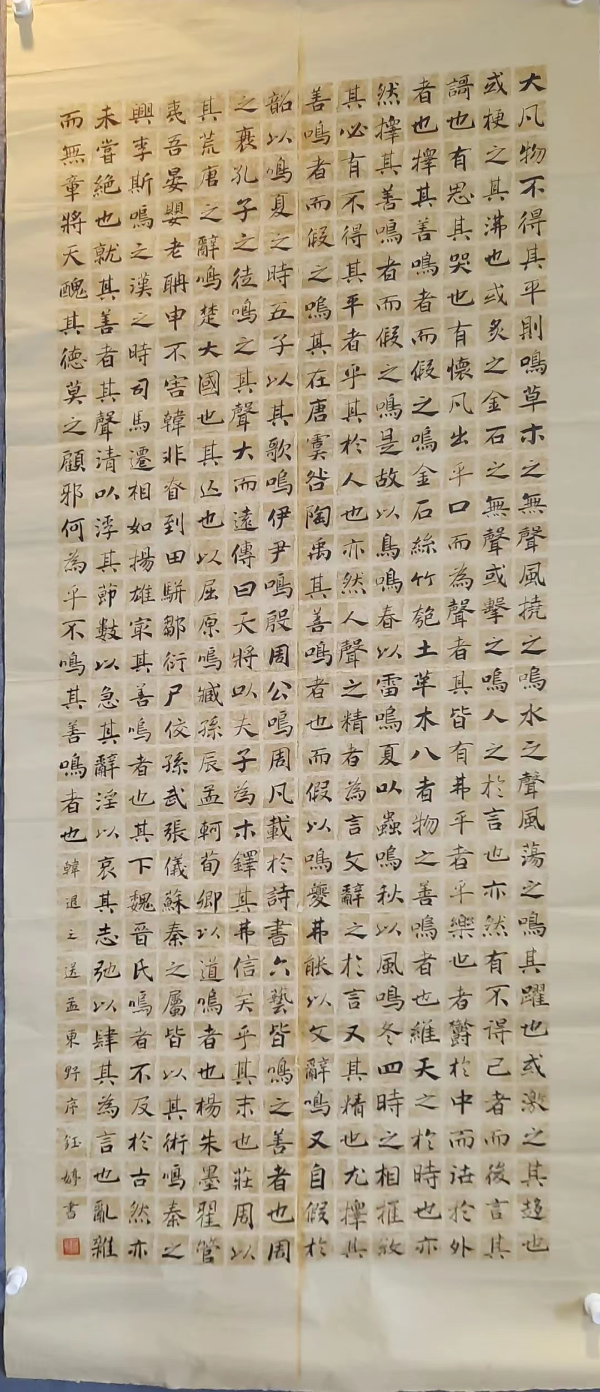 大凡物不得其平則鳴草木之無聲風撓之鳴水之聲風蕩之鳴其躍也或激之其趨也
或梗之其沸也或炙之金石之無聲或擊之鳴人之於言也亦然有不得已者而後言其
謌也有思其哭也有懷凡出乎口而為聲者其皆有弗平者乎樂也者鬱於中而泄於外
者也擇其善鳴者而假之鳴金石絲竹匏土革木八者物之善鳴者也維天之於時也亦
然擇其善鳴者而假之鳴是故以鳥鳴春以雷鳴夏以蟲鳴秋以風鳴冬四時之相推敓
其必有不得其平者乎其於人也亦然人聲之精者為言文辭之於言又其精也尤擇其
善鳴者而假之鳴其在唐虞咎陶禹其善鳴者也而假以鳴夔弗能以文辭鳴又自假於
韶以鳴夏之時五子以其歌鳴伊尹鳴殷周公鳴周凡載於詩書六藝皆鳴之善者也周
之衰孔子之徒鳴之其聲大而遠傳曰天將以夫子為木鐸其弗信矣乎其末也莊周以
其荒唐之辭鳴楚大國也其亡也以屈原鳴臧孫辰孟軻荀卿以道鳴者也楊朱墨翟管
夷吾晏嬰老聃申不害韓非昚到田駢鄒衍尸佼孫武張儀蘇秦之屬皆以其術鳴秦之
興李斯鳴之漢之時司馬遷相如揚雄㝡其善鳴者也其下魏晉氏鳴者不及於古然亦
未嘗絕也就其善者其聲清以浮其節數以急其辭淫以哀其志弛以肆其為言也亂雜
而無章將天醜其德莫之顧邪何為乎不鳴其善鳴者也韓退之送孟東野序鈺婷書